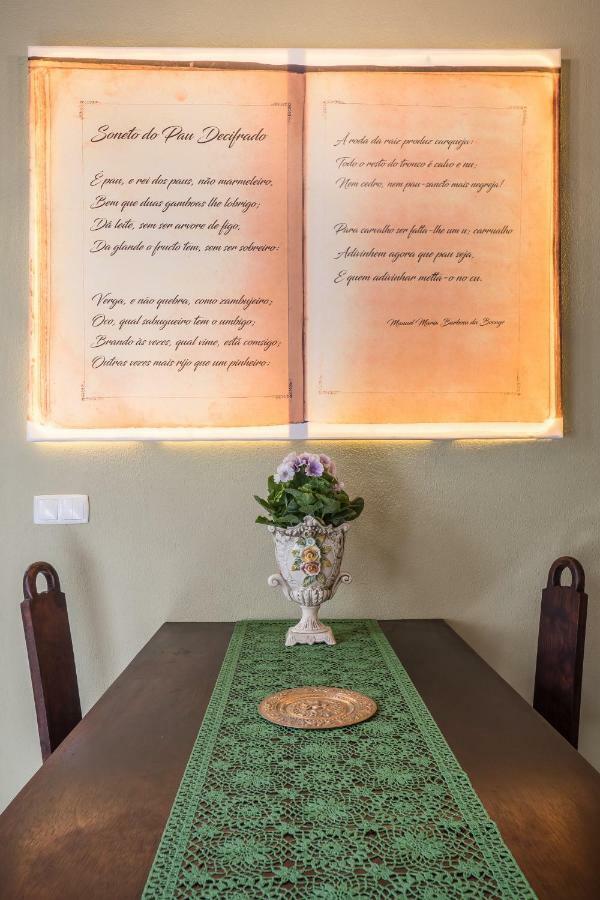 Soneto do Pau Decifrado
É pau, e rei dos paus, não marmeleiro,
Bem que duas gamboas lhe lobrigo;
Dá leite, sem ser arvore de figo,
Da glande o fructo tem, sem ser sobreiro:
Verga, e não quebra, como zambujeiro;
Oco, qual sabugueiro tem o umbigo;
Brando às vezes, qual vime, está comsigo;
Outras vezes mais rijo que um pinheiro:
A roda da raiz produz carqueja:
Todo o resto do tronco é calvo e nu;
Nem cedro, nem pau-sancto mais negreja!
Para carvalho ser falta-lhe um u; carrualho
Adivinhem agora que pau seja,
E quem adivinhar metta-o no cu.
Manuel Maria Barbosa du Bocage